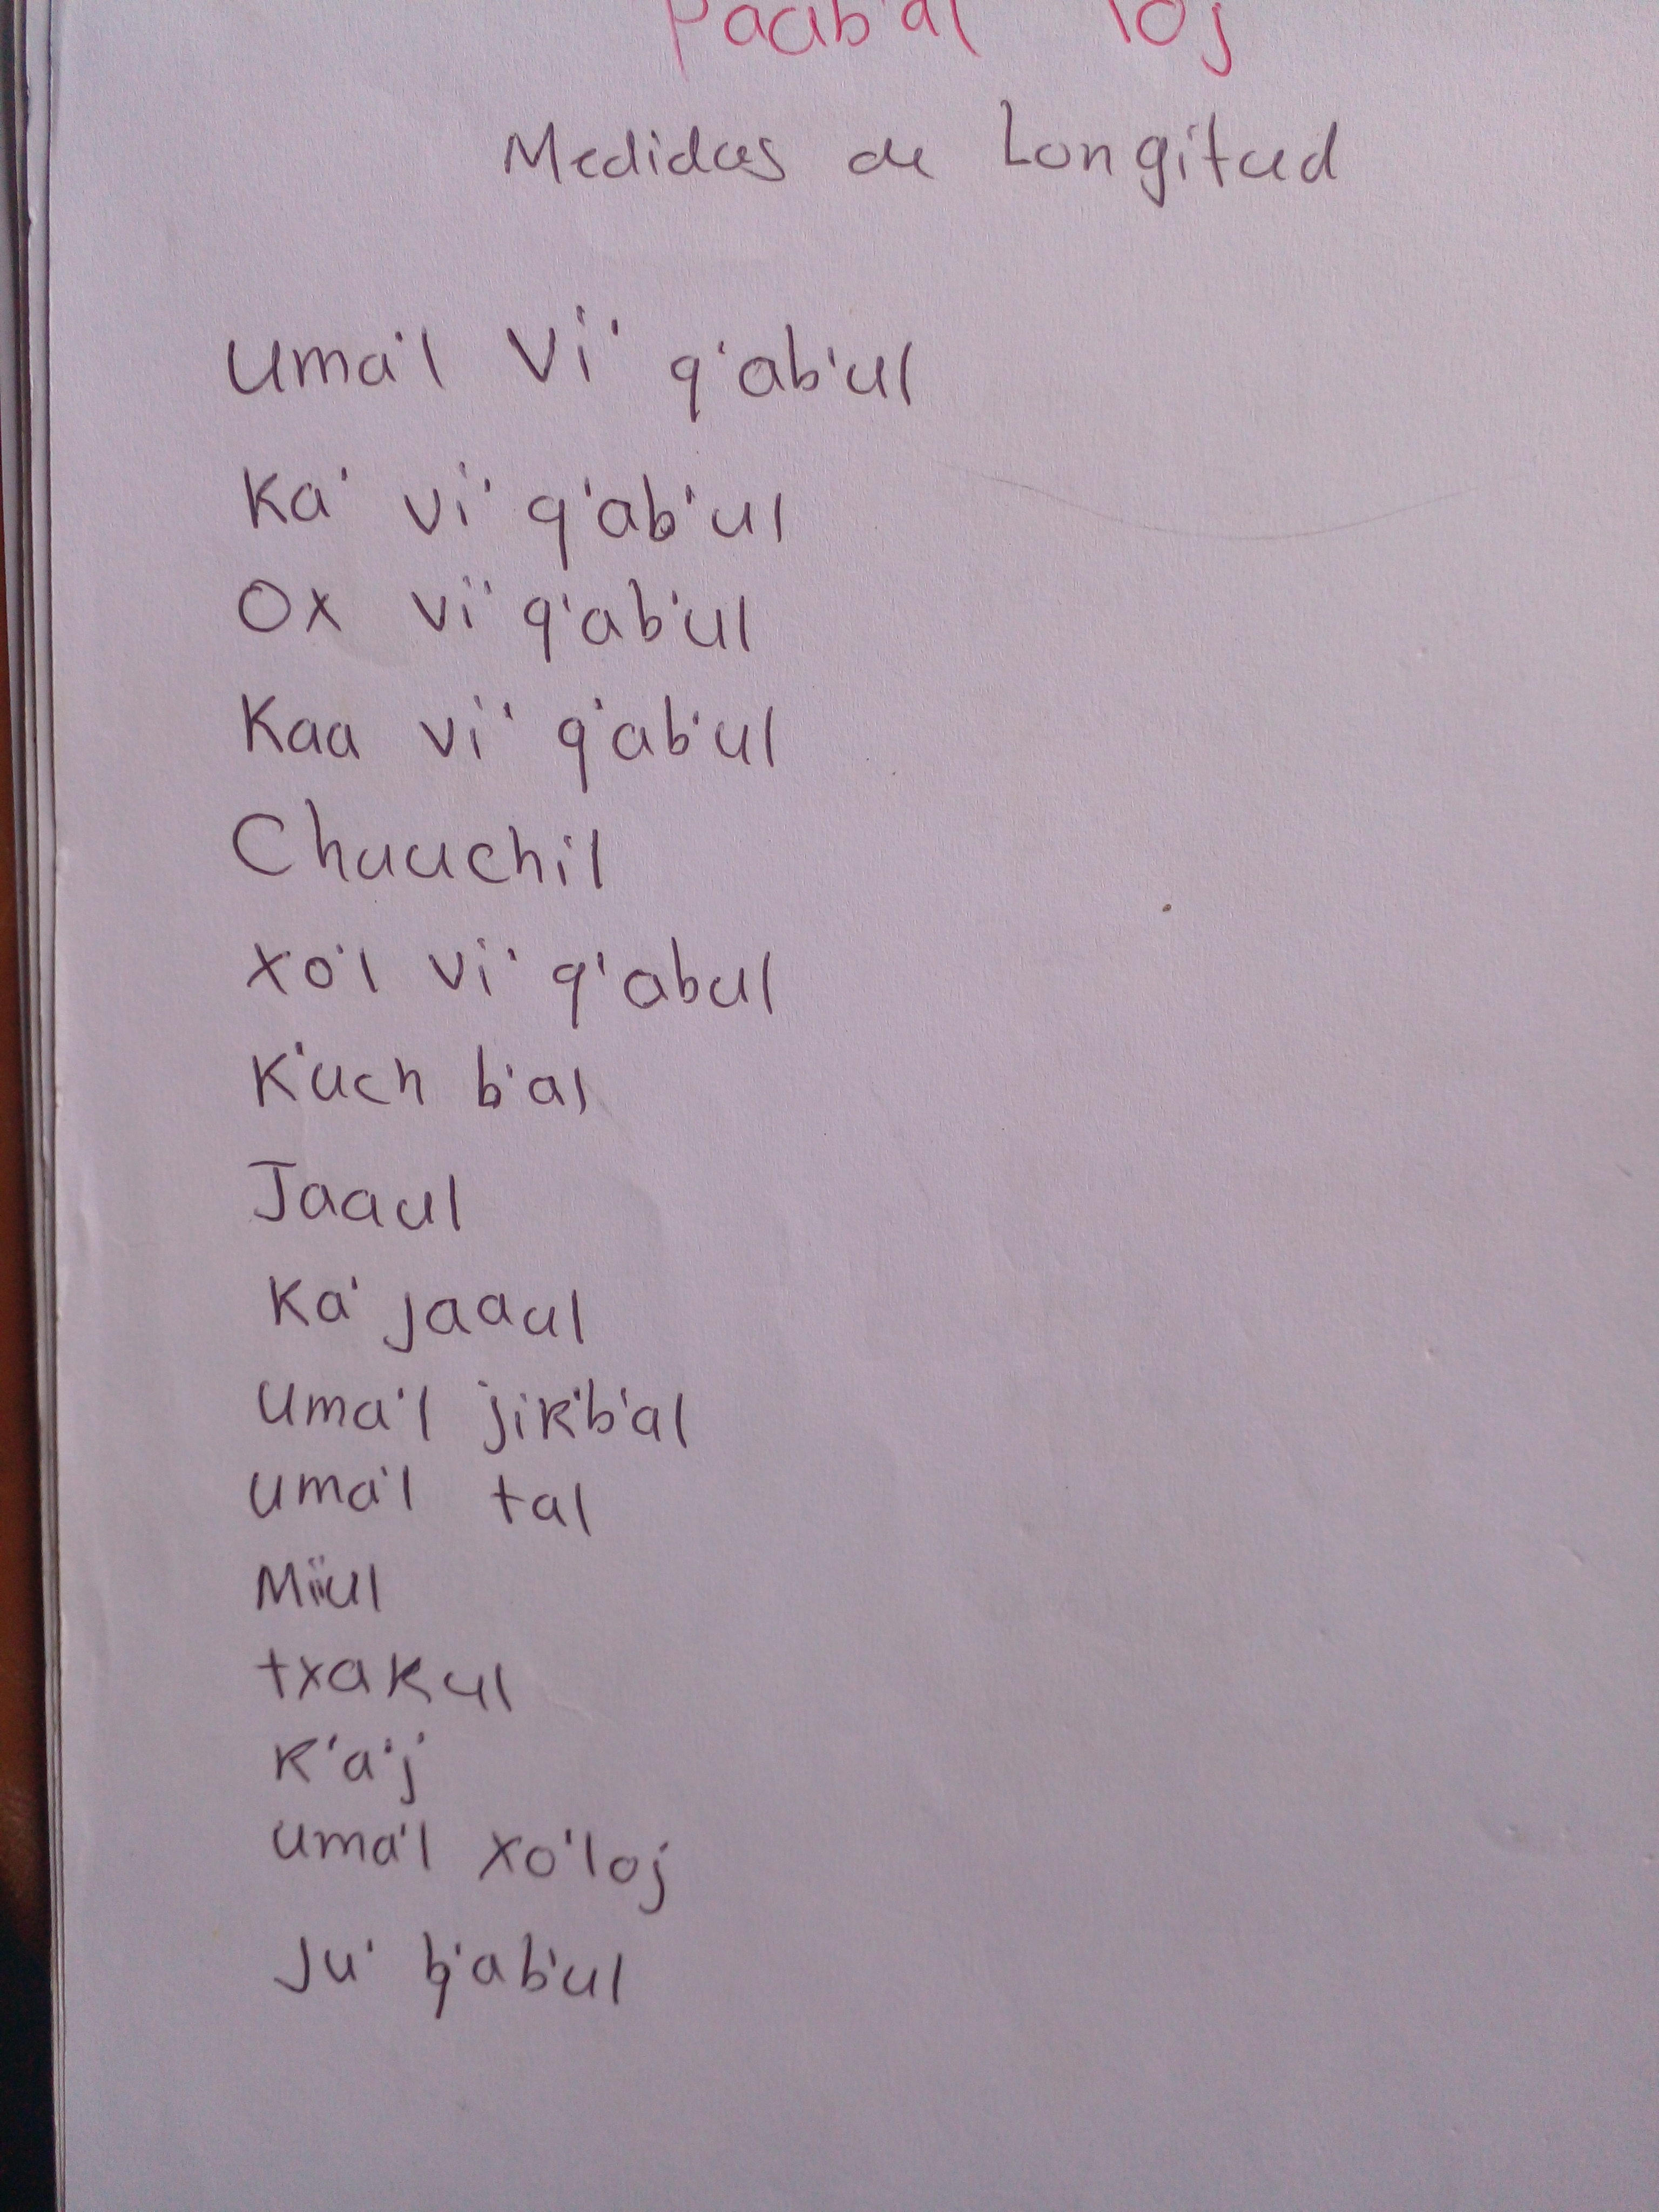 Paab'al loj
Medidas de Longitud
uma'l vi' q'ab'ul
Ka' vi' q'ab'ul
Ox vi' q'ab'ul
Kaa vi' q'ab'ul
Chuuchil
xo'l vi' q'abul
K'uch b'al
Jaaul
Ka' jaaul
uma'l jik'b'al
uma'l tal
Miiul
txakul
K'a'j
uma'l xo'loj
Ju' q'ab'ul